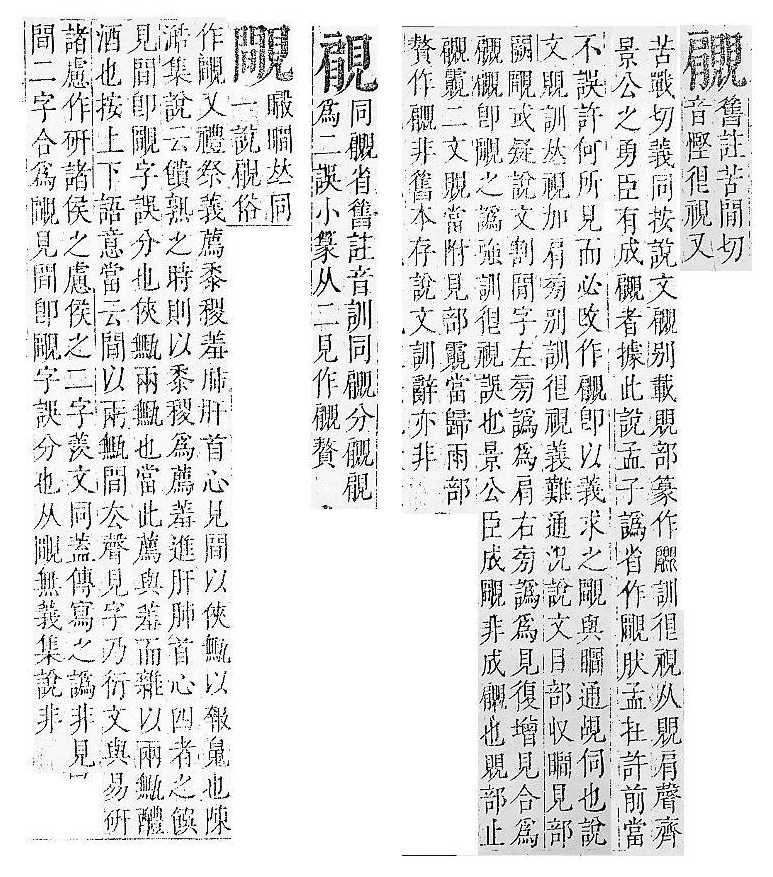 舊註苦閒切
音慳很視又
苦戰切義同按說文别載覞部篆作訓很視从覞肩聲齊
景公之勇臣有成者據此說孟子譌省作覸肰孟在許前當
不誤許何所見而必改作卽以義求之覸與瞯通覗伺也說
文覞訓𠀤視加肩旁别訓很視義難通況說文目部収瞯見部
闕覸或疑說文割閒字左旁譌為肩右旁譌為見復增見合為
卽覸之譌強訓很視誤也景公臣成覸非成也覞部止
二文覞當附見部當歸雨部
贅作非舊本存說文訓辭亦非
同省舊註音訓同分
為二誤小篆从二見作贅
覸
𠀤同
一說俗
作覸又禮祭義薦黍稷羞肺肝首心見間以俠甒以報也陳
澔集說云饋孰之時則以黍稷為薦羞進肝肺首心四者之饌
見間卽覸字誤分也俠甒兩甒也當此薦與羞而雜以兩甒醴
酒也按上下語意當云間以兩甒間去聲見字乃衍文與易研
諸慮作研諸侯之慮侯之二字羨文同蓋傳寫之譌非見
間二字合為覸見間卽覸字誤分也从覸無義集說非